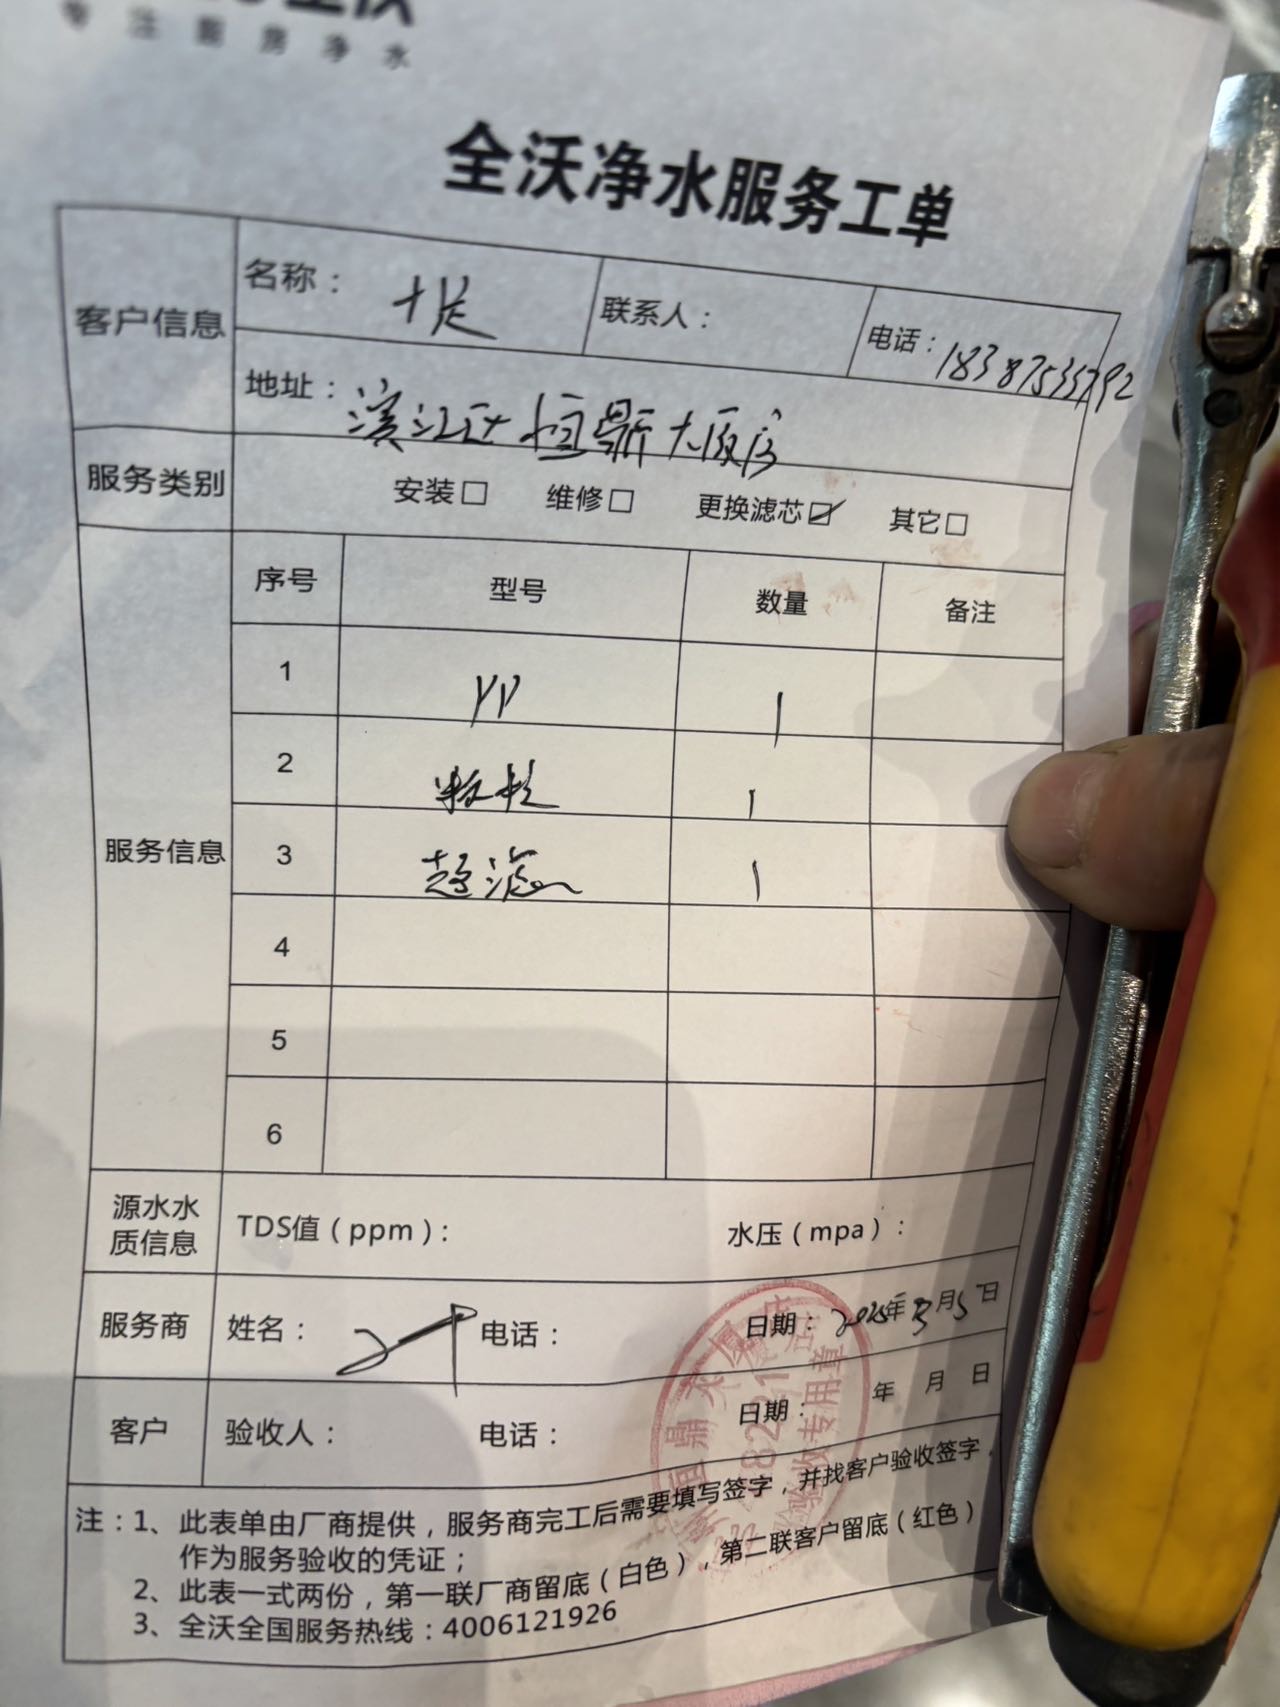 专注厨房净水
全沃净水服务工单
客户信息
名称：
联系人：
电话：18387535792
地址：滨江区恒鼎大厦店
服务类别
安装□ 维修□ 更换滤芯☑ 其它□
服务信息
序号 型号 数量 备注
1 PP 1
2 1
3 超滤 1
4
5
6
源水水质信息
TDS值（ppm）： 水压（mpa）：
服务商 姓名： 电话： 日期：2025年3月5日
客户 验收人： 电话： 日期： 年 月 日
恒鼎大厦店
验收专用章
注：1、此表单由厂商提供，服务商完工后需要填写签字，并找客户验收签字，
作为服务验收的凭证；
2、此表一式两份，第一联厂商留底（白色），第二联客户留底（红色）
3、全沃全国服务热线：4006121926